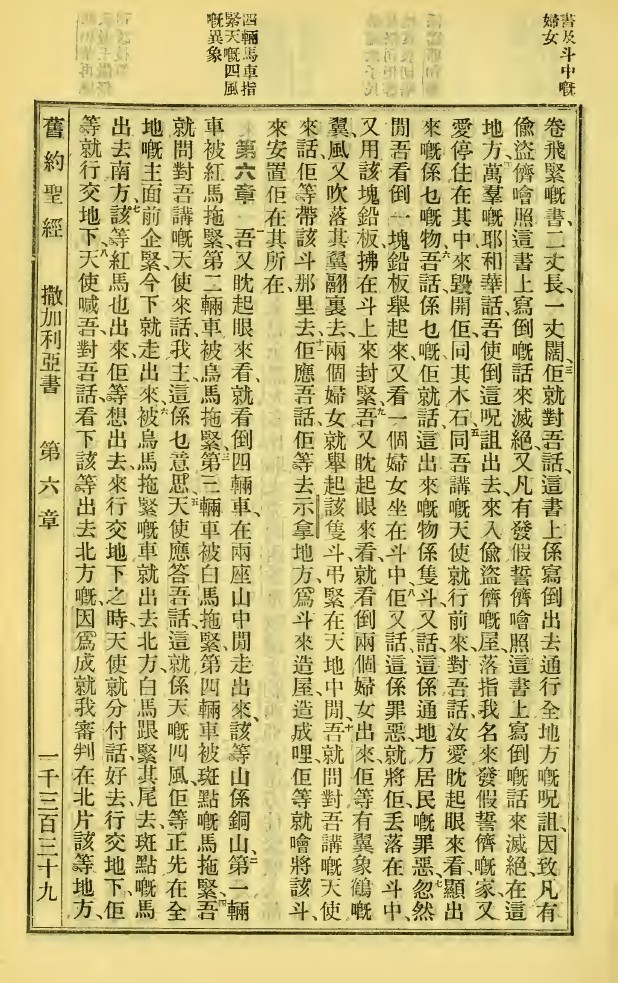 書及斗中嘅
婦女
四輛馬車指
緊天嘅四風
嘅異象
卷飛緊嘅書、二丈長、一丈闊、三佢就對吾話、這書上係寫倒出去通行全地方嘅呪詛、因致凡有
偸盜儕噲照這書上寫倒嘅話來滅絕、又凡有發假誓儕噲照這書上寫倒嘅話來滅絕、在這
地方、四萬羣嘅耶和華話、吾使倒這呪詛出去、來入偸盜儕嘅屋、落指我名來發假誓儕嘅家、又
愛停住在其中、來毀開佢同其木石、五同吾講嘅天使就行前來、對吾話、汝愛眈起眼來看、顯出
來嘅係乜嘅物、六吾話、係乜嘅、佢就話、這出來嘅物係隻斗、又話、這係通地方居民嘅罪惡、七忽然
閒吾看倒一塊鉛板舉起來、又看一個婦女坐在斗中、八佢又話、這係罪惡、就將佢丟落在斗中、
又用該塊鉛板拂在斗上來封緊、九吾又眈起眼來看、就看倒兩個婦女出來、佢等有翼象鶴嘅
翼、風又吹落其翼翮裏去、兩個婦女就舉起該隻斗、弔緊在天地中閒、十吾就問對吾講嘅天使
來話、佢等帶該斗那里去、十一佢應吾話、佢等去示拿地方、爲斗來造屋、造成哩、佢等就噲將該斗、
來安置佢在其所在、
第六章 一吾又眈起眼來看、就看倒四輛車、在兩座山中閒走出來、該等山係銅山、二第一輛
車被紅馬拖緊、第二輛車被烏馬拖緊、三第三輛車被白馬拖緊、第四輛車被斑點嘅馬拖緊、四吾
就問對吾講嘅天使來話、我主、這係乜意思、五天使應答吾話、這就係天嘅四風、佢等正先在全
地嘅主面前企緊、今下就走出來、六被烏馬拖緊嘅車就出去北方、白馬跟緊其尾去、斑點嘅馬
出去南方、七該等紅馬也出來、佢等想出去來行交地下之時、天使就分付話、好去行交地下、佢
等就行交地下、八天使喊吾、對吾話、看下該等出去北方嘅、因爲成就我審判在北片該等地方、
舊約聖經 撒加利亞書 第六章 一千三百三十九